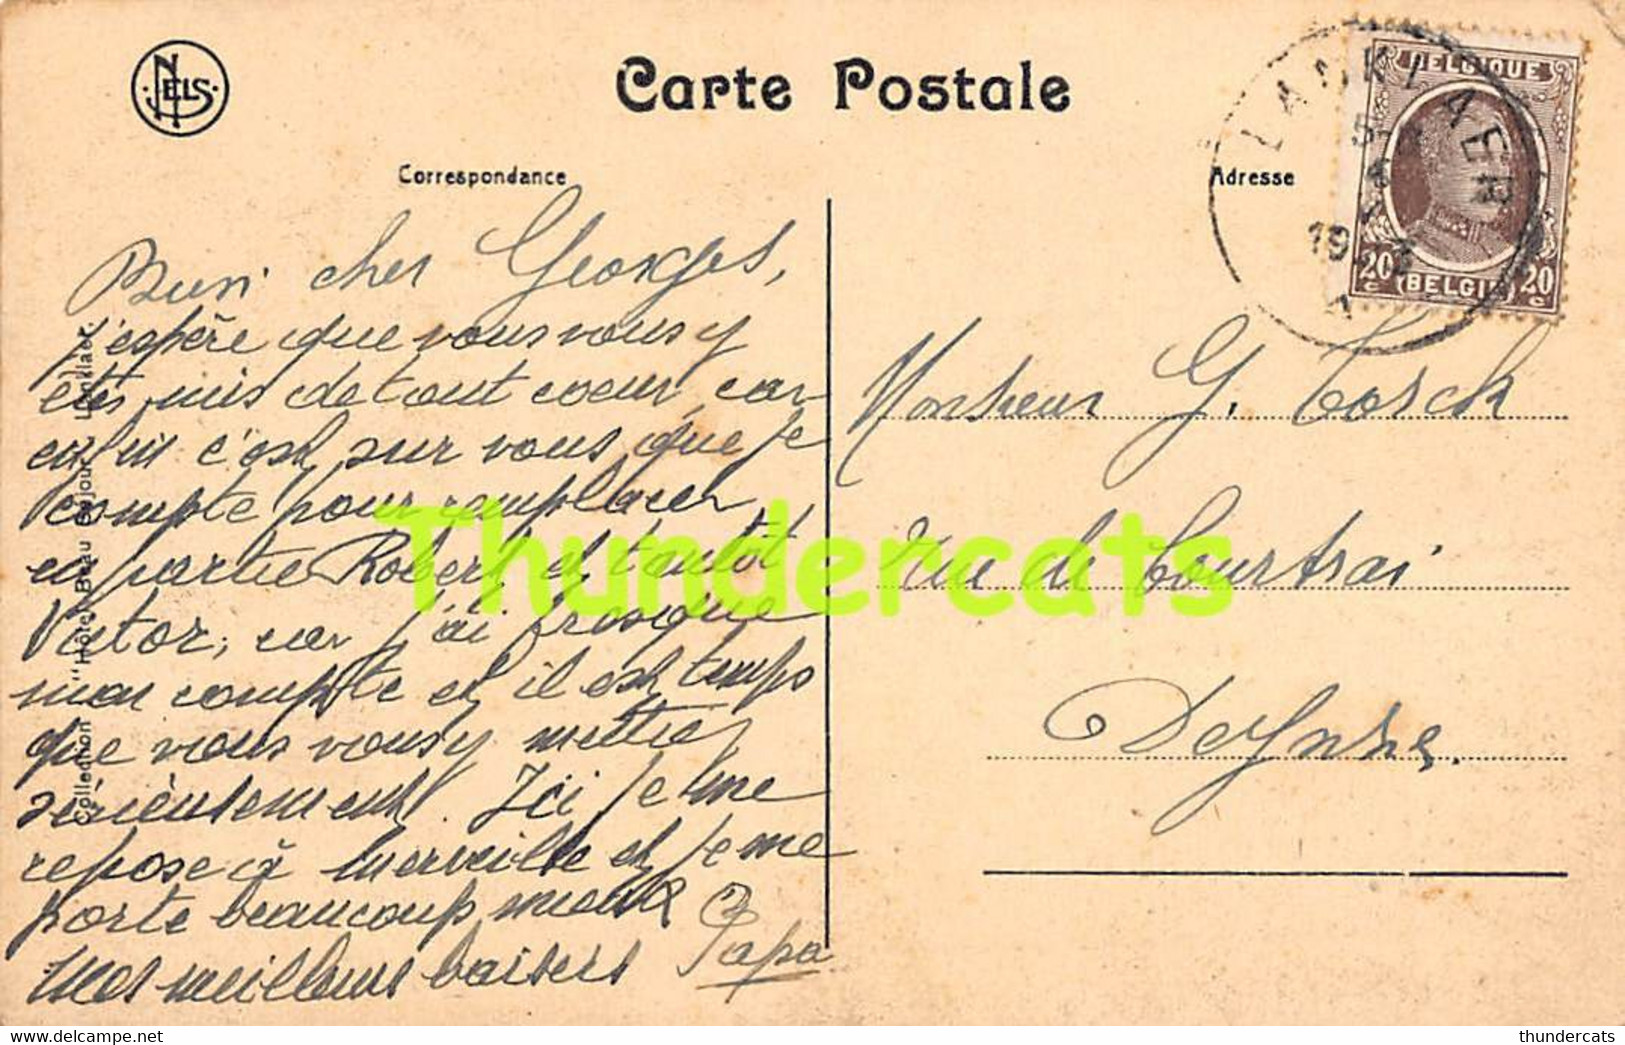 NELS
Carte Postale
Correspondance
Adresse
LANKLAER
19
BELGIQUE
20 c (BELGIË) 20 c
Bien cher Georges,
j'espère que vous vous y
êtes mis de tout coeur, car
enfin c'est sur vous que je
compte pour remplacer
en partie Robert et tantôt
Victor, car j'ai presque
mon compte et il est temps
que vous vous y mettiez
sérieusement. Ici je me
repose à merveille et je me
porte beaucoup mieux
Mes meilleurs baisers Papa
Monsieur G. Torck
rue de Courtrai
Deynze.
Collection "Hôtel Beau Séjour" Lanklaer.
Thundercats
thundercats